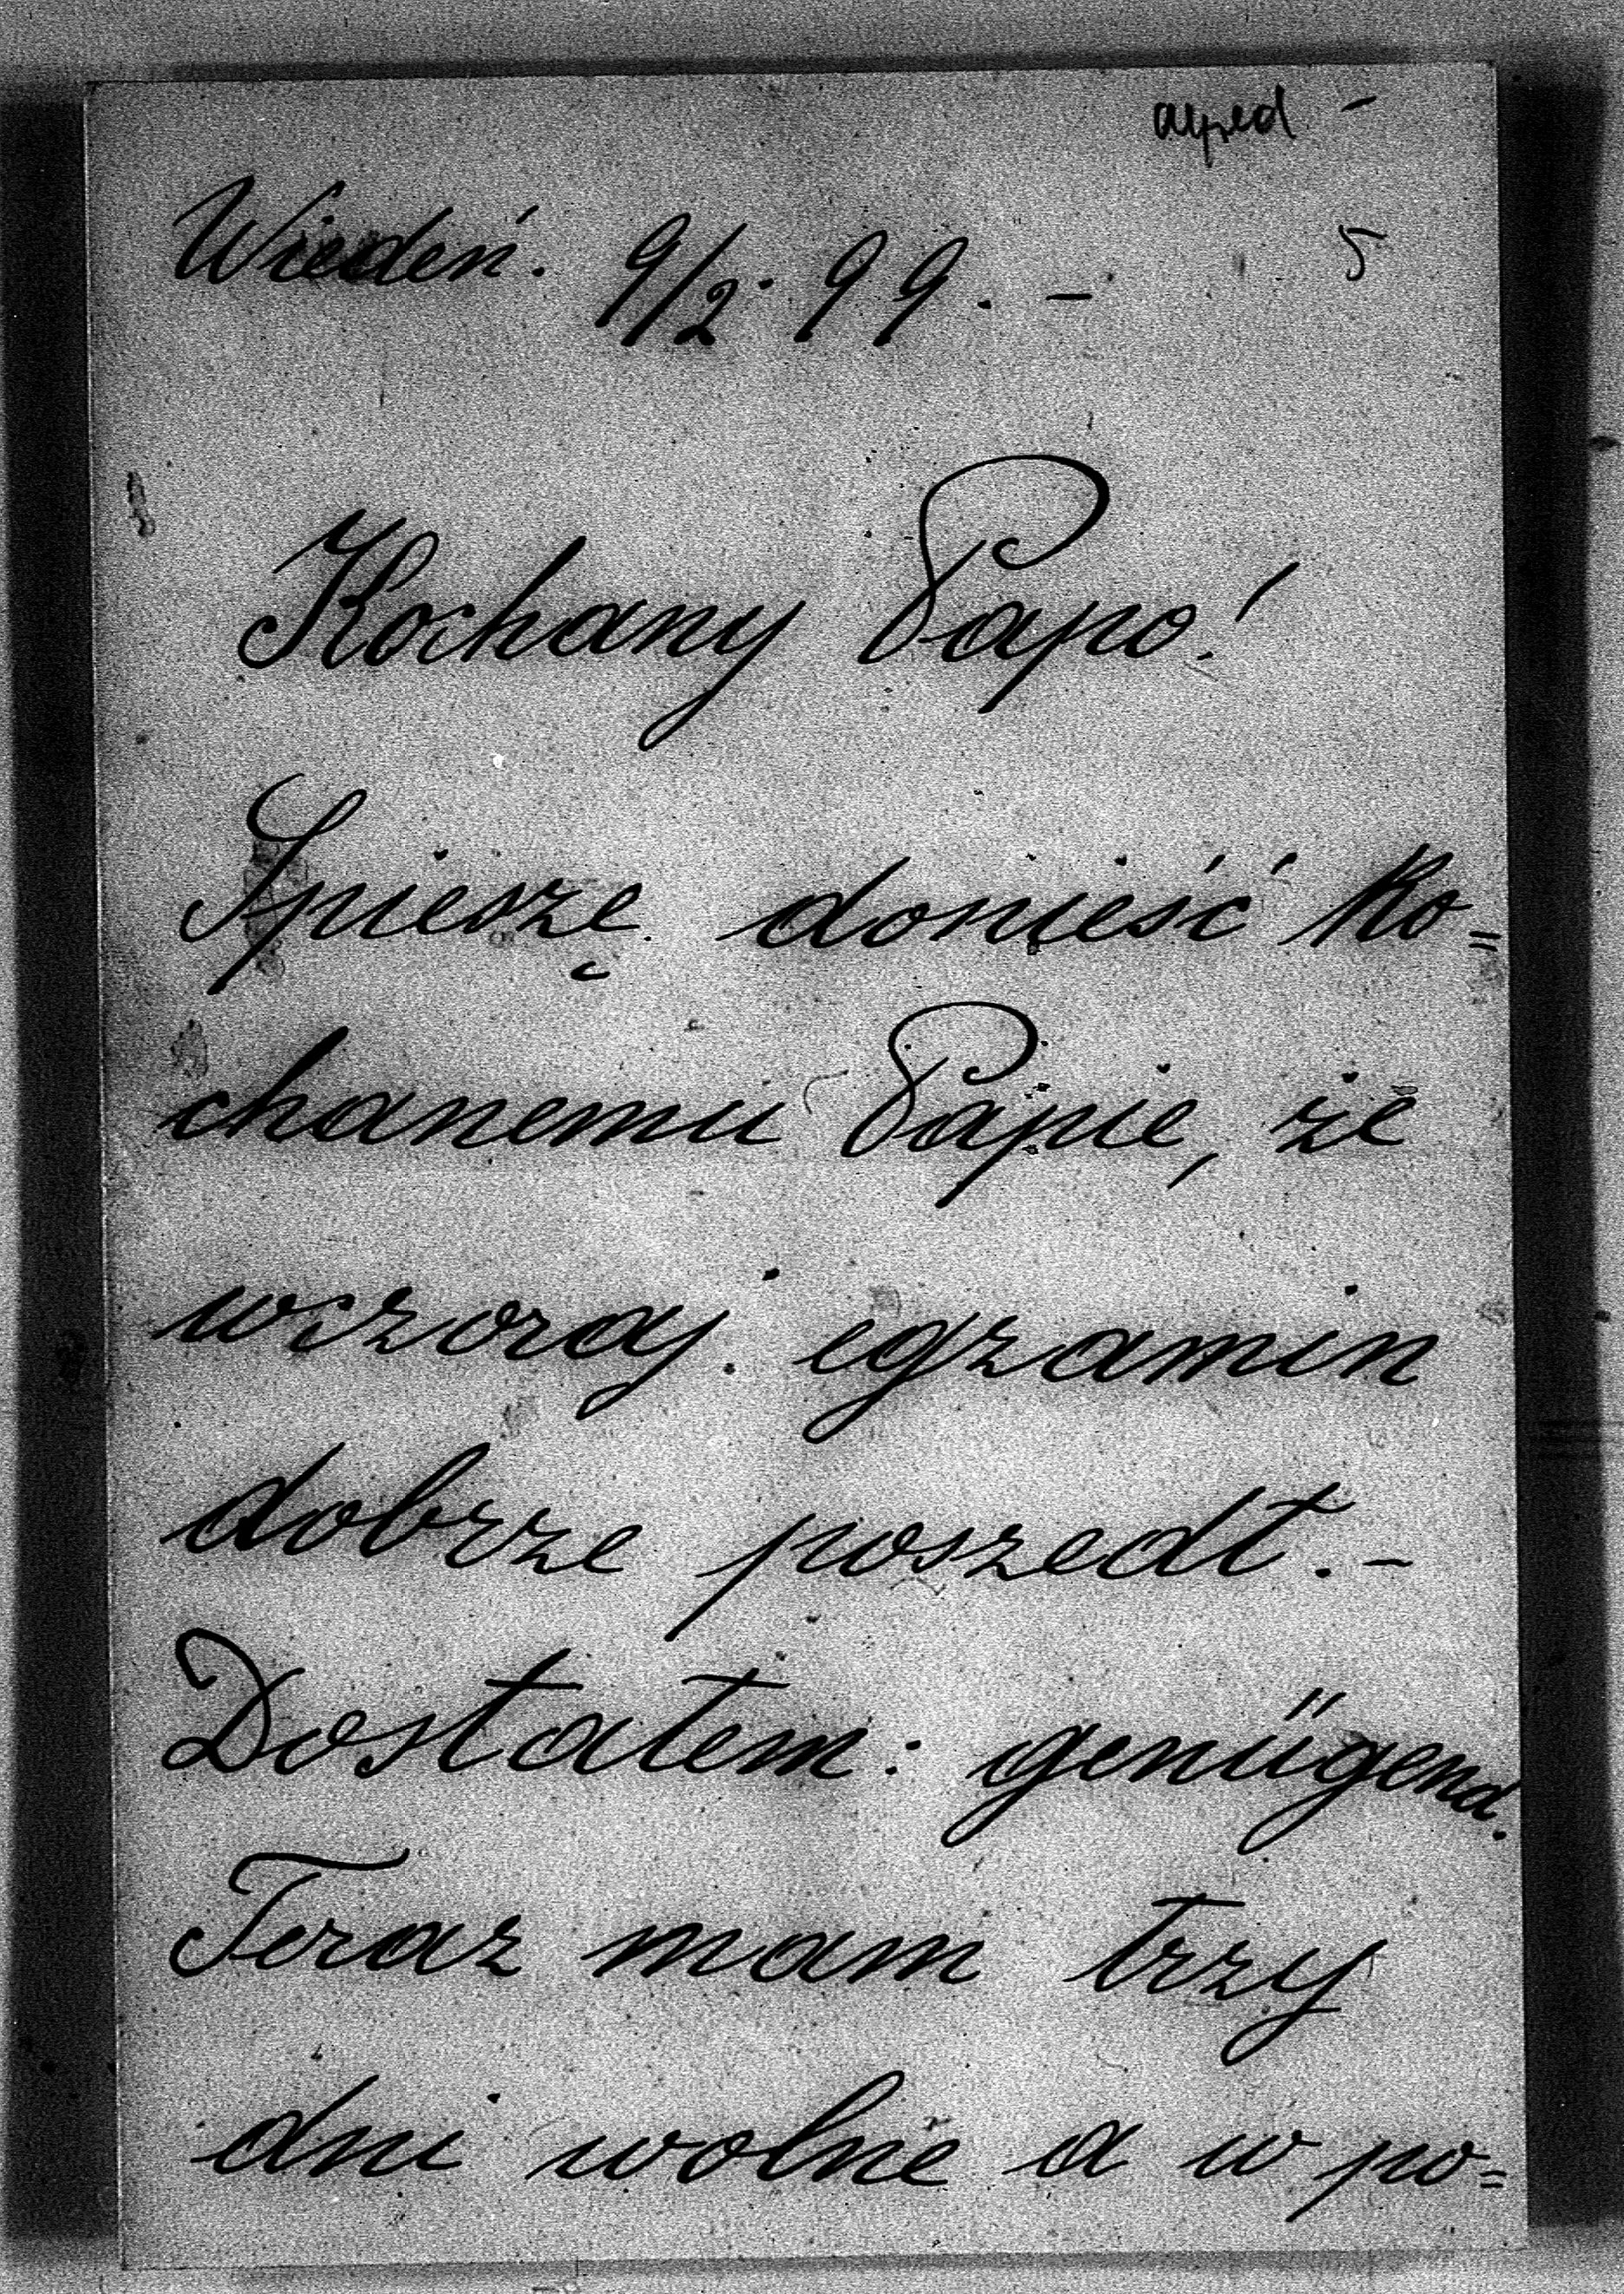 alfred -
5
Wiedeń. 9/2. 99. -
Kochany Papo!
Spieszę donieść ko=
chanemu Papie, że
wczoraj egzamin
dobrze poszedł. -
Dostałem: genügend.
Teraz mam trzy
dni wolne a w po=